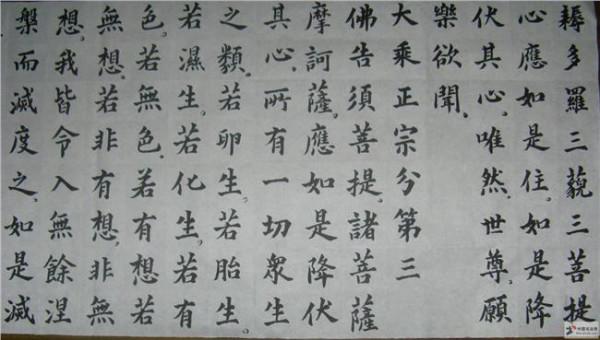 耨多羅三藐三菩提
心應如是住。如是降
伏其心。唯然。世尊。願
樂欲聞。
大乘正宗分第三
佛告須菩提。諸菩薩
摩訶薩。應如是降伏
其心。所有一切眾生
之類。若卵生。若胎生。
若濕生。若化生。若有
色。若無色。若有想若
無想。若非有想。非無
想。我皆令入無餘涅
槃而滅度之。如是滅